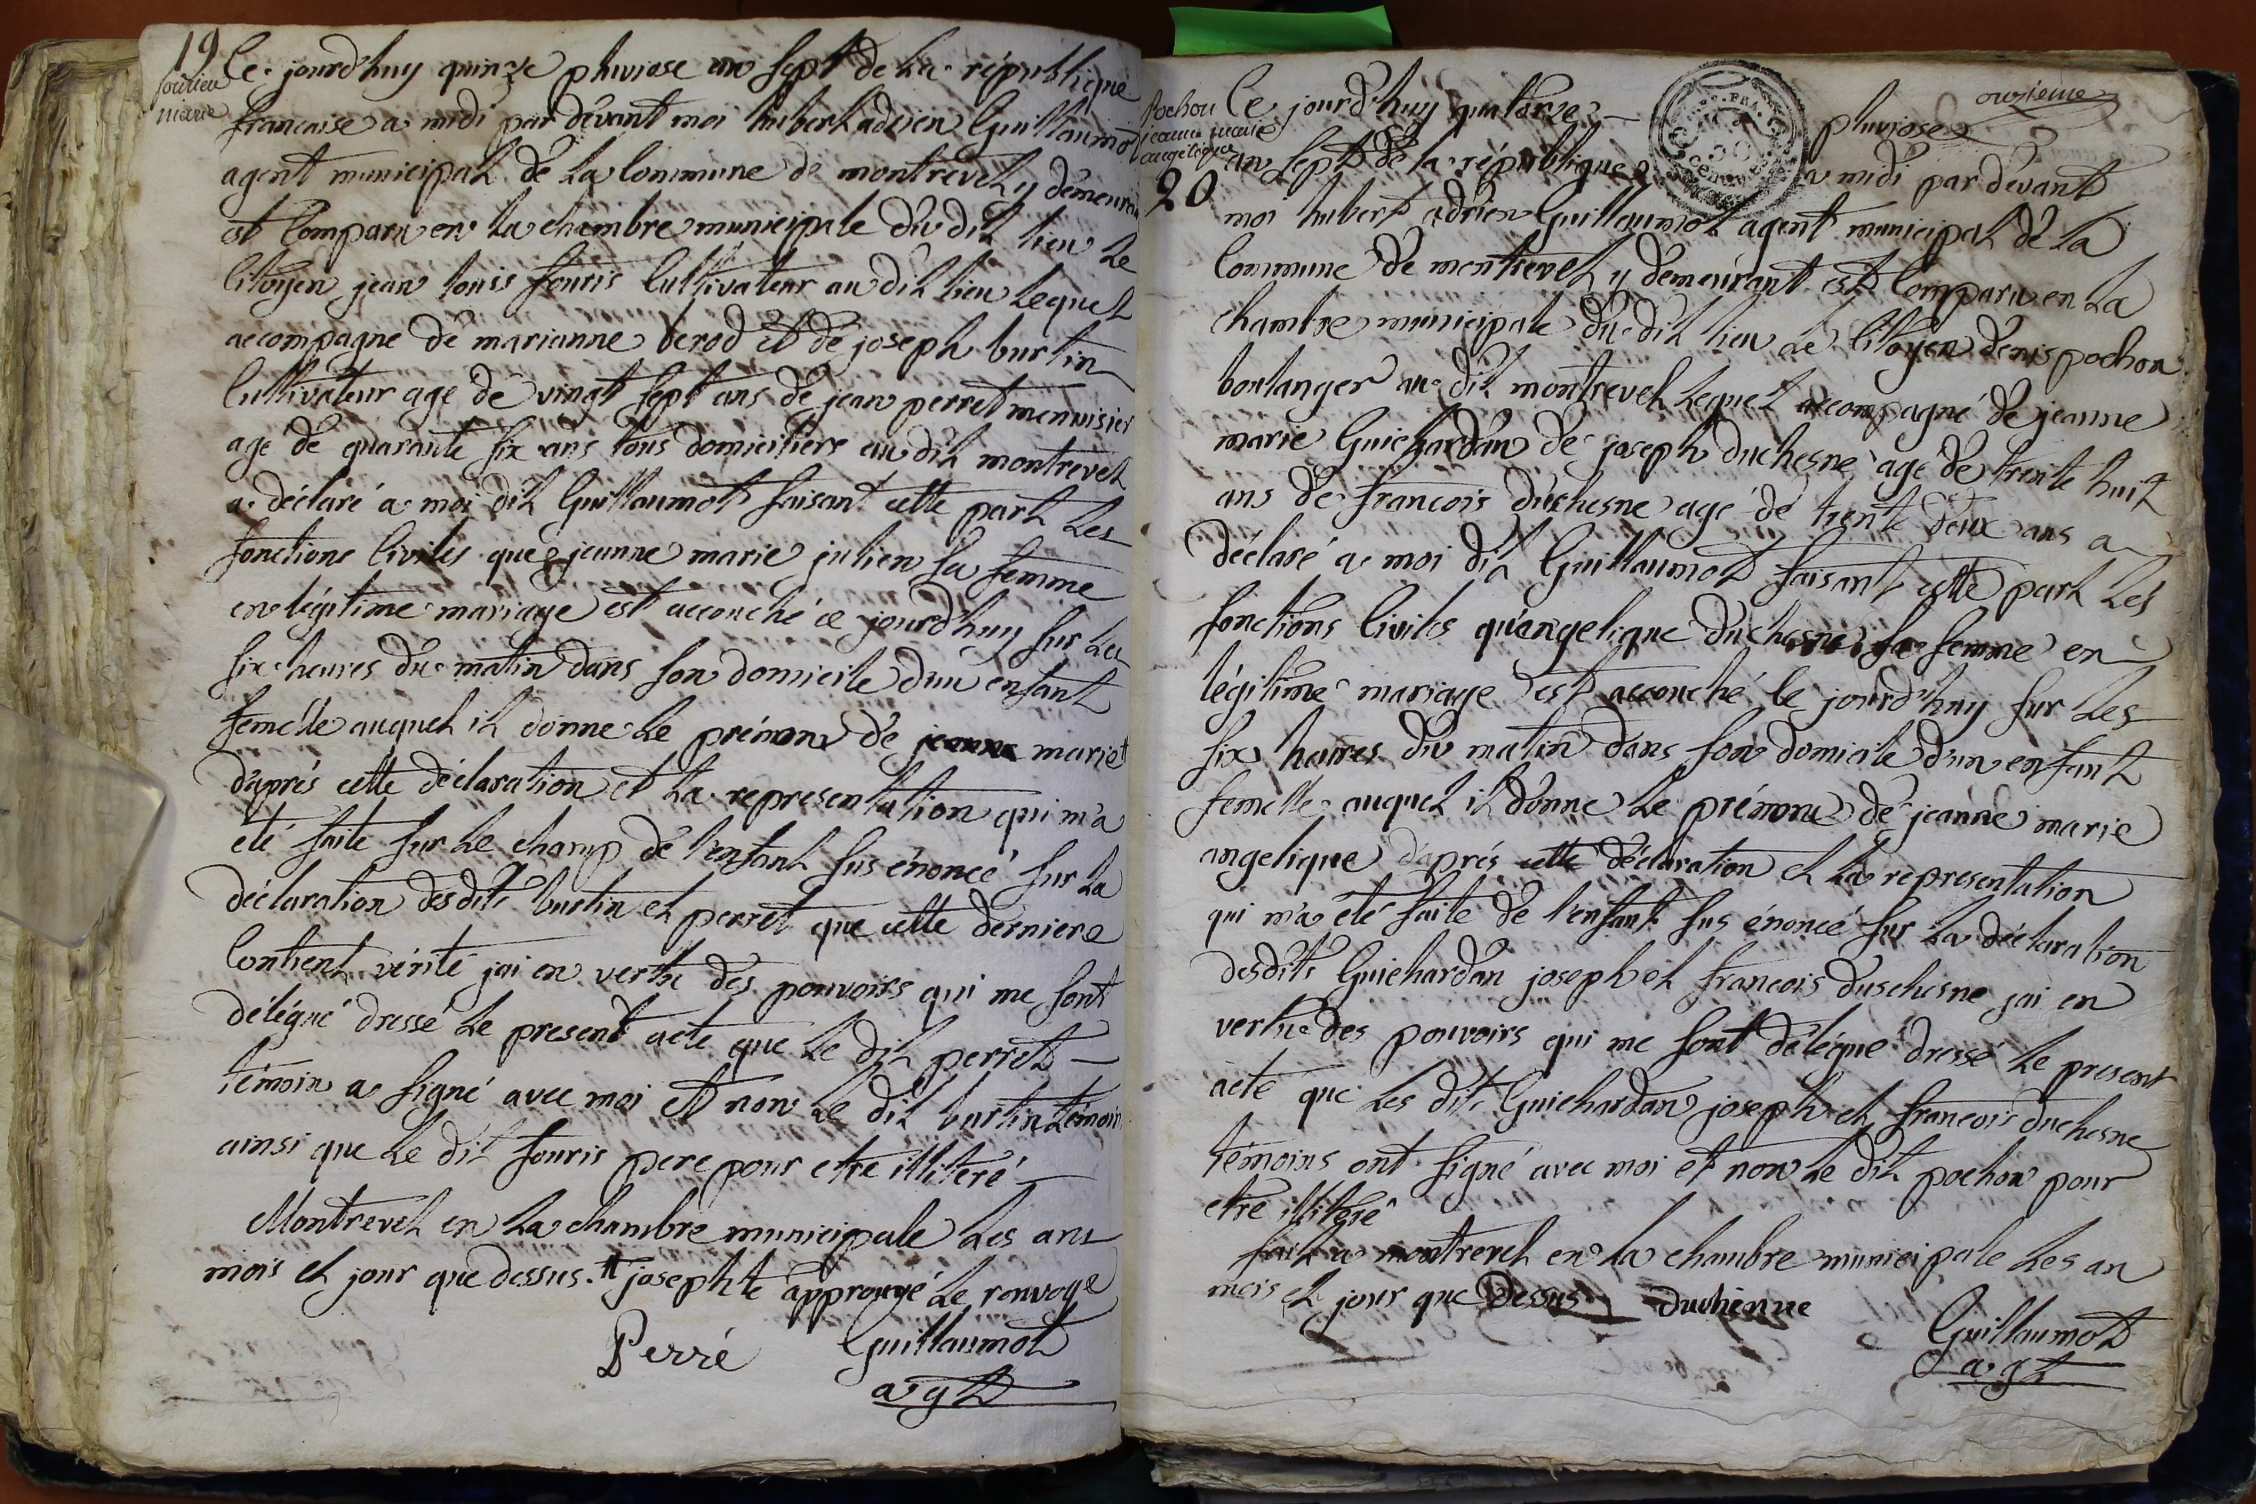 19
marie
Ce jourd'huy quinze pluviose an sept de la république
francaise a midi par devant moi hubert adrien Guillaumot
agent municipal de la Commune de montrevel y demeurant
est Comparu en la chambre municipale du dit lieu le
Citoyen jean louis souris Cultivateur au dit lieu lequel
accompagne de marianne berod et de joseph burtin
Cultivateur age de vingt sept ans de jean perret menuisier
age de quarante six ans tous domicilies au dit montrevel
a déclaré a moi dit Guillaumot faisant cette part les
fonctions Civiles que jeanne marie julien sa femme
en légitime mariage est accouché ce jourd'huy sur les
six heures du matin dans son domicile d'un enfant
femelle auquel il donne le prénom de marie
d'aprés cette déclaration et la representation qui m'a
eté faite sur le champ de l'enfant sus énoncé sur la
déclaration desdits burtin et perret que cette derniere
Contient vérité jai en vertu des pouvoirs qui me sont
délégué dressé le present acte que le dit perret
témoin a signé avec moi et non le dit burtin témoin
ainsi que le dit souris pere pour etre illiteré
Montrevel en la chambre municipale les ans
mois et jour que dessus. josephte approuvé le renvoye
Perré Guillaumot
agt
onzieme
Pochon
jeanne marie
angelique
20
Ce jourd'huy quatorze pluviose
an sept de la république a midi par devant
moi hubert adrien Guillaumot agent municipal de la
Commune de montrevel y demeurant est Comparu en la
chambre municipale du dit lieu le Citoyen denis pochon
boulanger au dit montrevel lequel accompagné de jeanne
marie Guichardan de joseph duchesne age de trente huit
ans de francois duchesne agé de trente deux ans a
déclaré a moi dit Guillaumot faisant cette part les
fonctions Civiles qu'angelique duchesne sa femme en
légitime mariage est accouché ce jourd'huy sur les
six heures du matin dans son domicile d'un enfant
femelle auquel il donne le prénom de jeanne marie
angelique d'aprés cette déclaration et la representation
qui m'a été faite de l'enfant sus énoncé sur la déclaration
desdits Guichardan joseph et francois duschesne jai en
vertu des pouvoirs qui me sont délégué dressé le present
acte que les dits Guichardan joseph et francois duchesne
témoins ont signé avec moi et non le dit pochon pour
etre illiteré
fait a montrevel en la chambre municipale les an
mois et jour que dessus duchenne
Guillaumot
agt